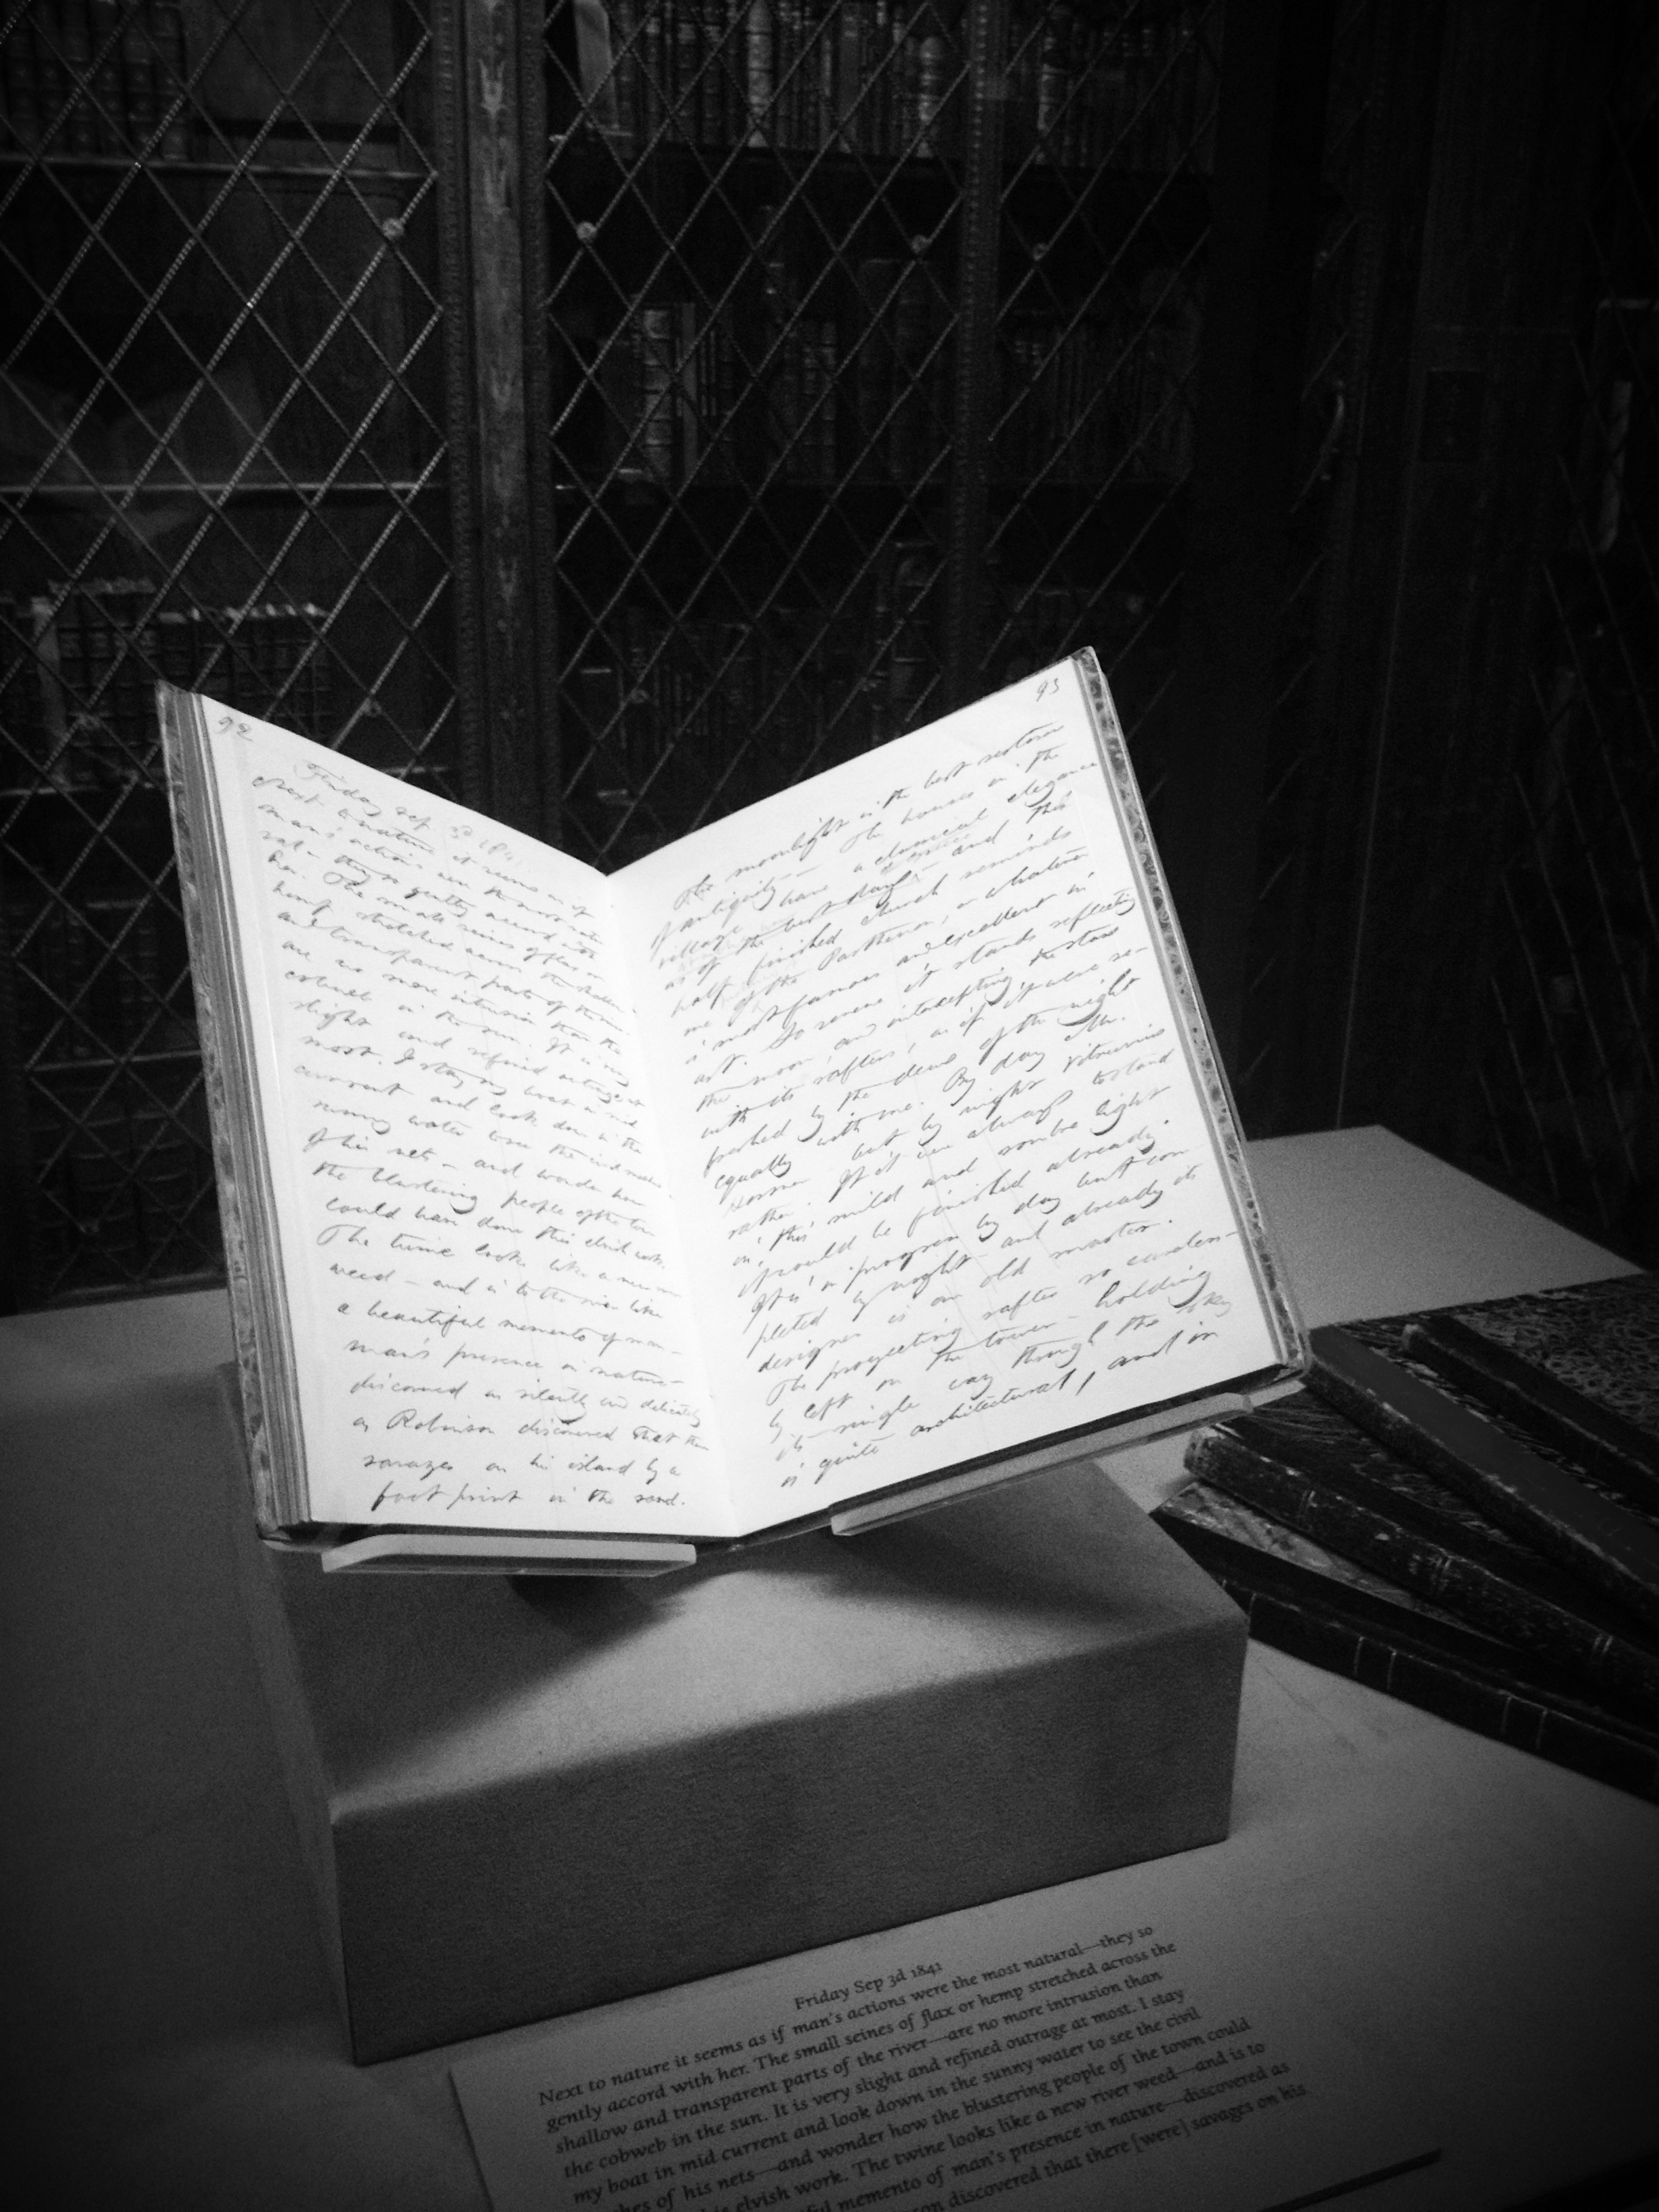 92
Friday Sep. 3d 1841
Next to nature it seems as if
man's actions were the most natu-
ral — they so gently accord with
her. The small seines of flax or
hemp stretched across the shallow
and transparent parts of the river
are no more intrusion than the
cobweb in the sun. It is very
slight and refined outrage at
most. I stay my boat in mid
current and look down in the
sunny water to see the civil meshes
of his nets — and wonder how
the blustering people of the town
could have done this elvish work.
The twine looks like a new river
weed — and is to the river like
a beautiful memento of man —
man's presence in nature —
discovered as silently and delicately
as Robinson discovered that there
savages on his island by a
foot print in the sand.
93
The moonlight is the best restorer
of antiquity — The houses in the
village have a classical elegance
as of the best days of and this
half finished church reminds
me of the Parthenon, or whatever
is most famous and excellent in
art. So serene it stands reflecting
the moon, and intercepting the stars
with its rafters, as if it were re-
freshed by the dews of the night
equally with me. By day Mr.
but by night Vitruvius
rather. If it were always to stand
in this mild and sombre light
it would be finished already.
It is in progress by day but com
pleted by night and already its
designer is an old master.
The projecting rafter so careless-
ly left on the tower — holding
its single way through the sky
is quite architectural, and in
Friday Sep 3d 1841
Next to nature it seems as if man's actions were the most natural—they so
gently accord with her. The small seines of flax or hemp stretched across the
shallow and transparent parts of the river—are no more intrusion than
the cobweb in the sun. It is very slight and refined outrage at most. I stay
my boat in mid current and look down in the sunny water to see the civil
hes of his nets—and wonder how the blustering people of the town could
elvish work. The twine looks like a new river weed—and is to
ful memento of man's presence in nature—discovered as
son discovered that there [were] savages on his